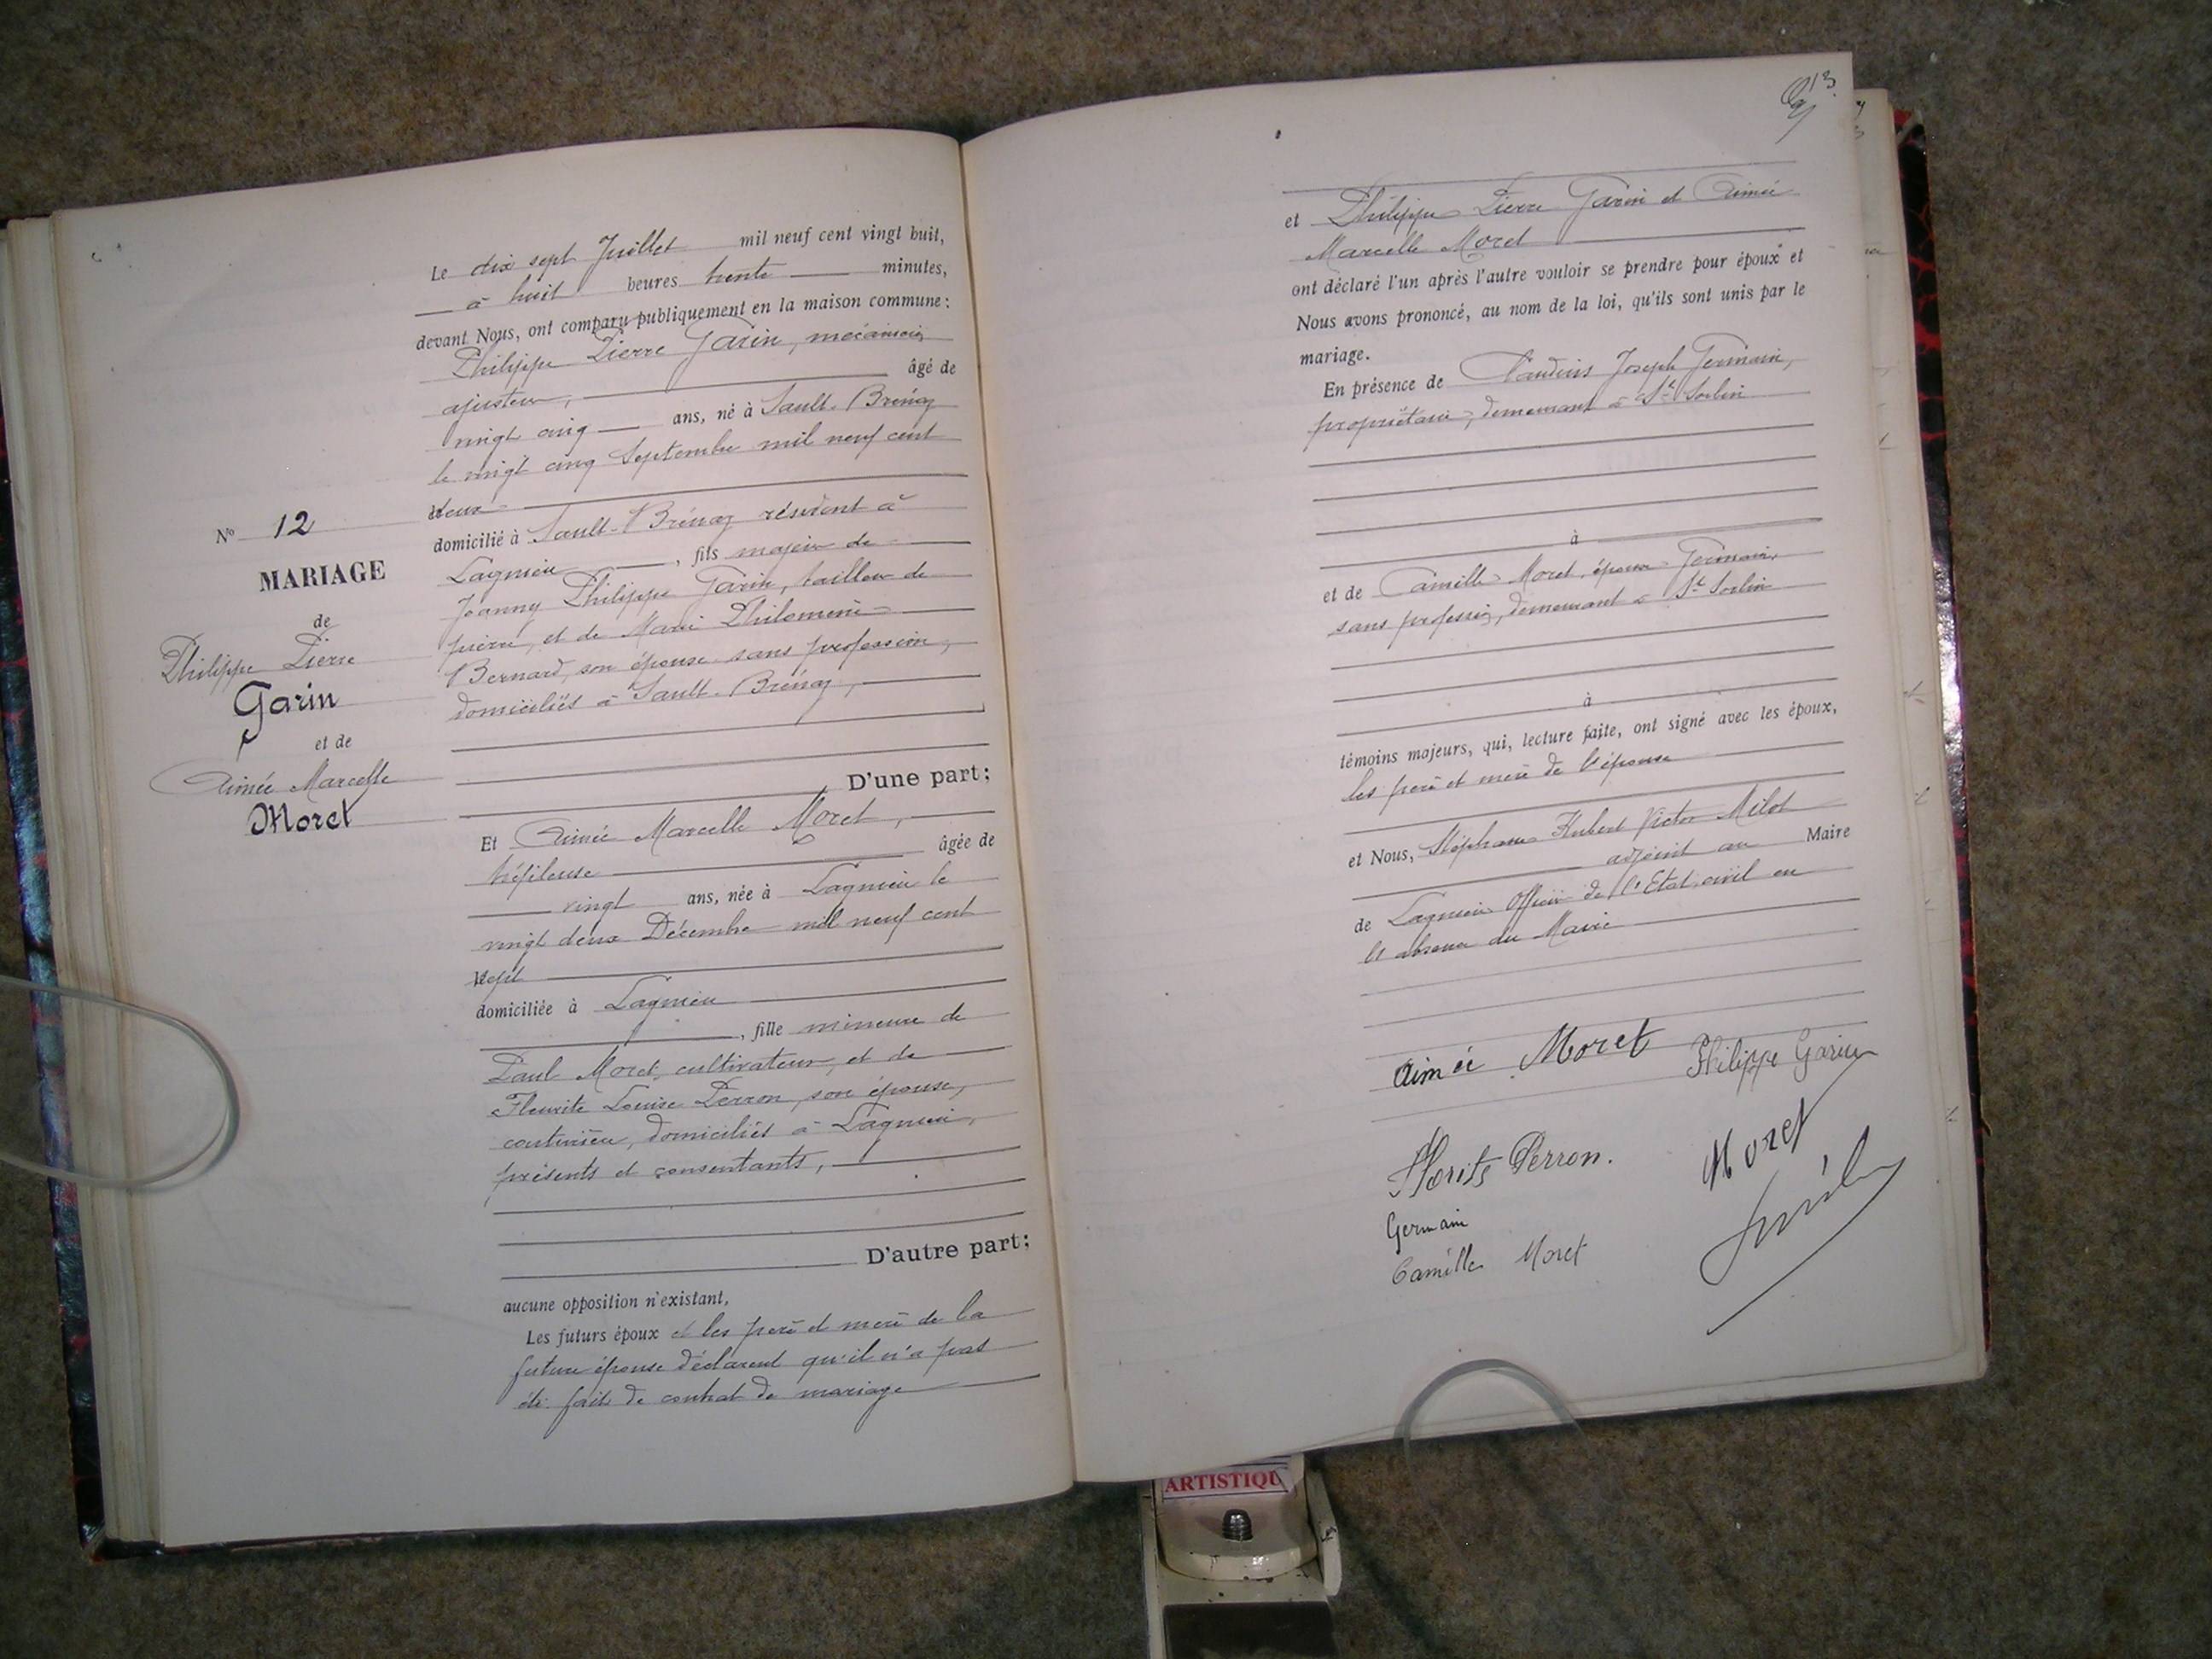 Le dix sept Juillet mil neuf cent vingt huit,
à huit heures trente minutes,
devant Nous, ont comparu publiquement en la maison commune :
Philippe Pierre Garin, mécanicien
ajusteur, âgé de
vingt cinq ans, né à Sault-Brénaz
le vingt cinq Septembre mil neuf cent
deux
domicilié à Sault-Brénaz résident à
Lagnieu, fils majeur de
Joanny Philippe Garin, tailleur de
pierre, et de Marie Philomène
Bernard, son épouse sans profession,
domiciliés à Sault-Brénaz,
D'une part;
Et Aimée Marcelle Moret,
tréfileuse âgée de
vingt ans, née à Lagnieu le
vingt deux Décembre mil neuf cent
sept
domiciliée à Lagnieu
, fille mineure de
Paul Moret, cultivateur, et de
Fleurite Louise Perron, son épouse,
couturière, domiciliés à Lagnieu,
présents et consentants,
D'autre part;
aucune opposition n'existant,
Les futurs époux et les père et mère de la
future épouse déclarent qu'il n'a pas
été fait de contrat de mariage
No 12
MARIAGE
de
Philippe Pierre
Garin
et de
Aimée Marcelle
Moret
13
et Philippe Pierre Garin et Aimée
Marcelle Moret
ont déclaré l'un après l'autre vouloir se prendre pour époux et
Nous avons prononcé, au nom de la loi, qu'ils sont unis par le
mariage.
En présence de Claudius Joseph Germain,
propriétaire, demeurant à St Sorlin
à
et de Camille Moret, épouse Germain,
sans profession, demeurant à St Sorlin
à
témoins majeurs, qui, lecture faite, ont signé avec les époux,
les père et mère de l'épouse
et Nous, Stéphane Hubert Victor Milot
adjoint au Maire
de Lagnieu Officier de l'Etat civil en
l'absence du Maire
Aimée Moret Philippe Garin
Florite Perron. Moret
Germain
Camille Moret
ARTISTIQU